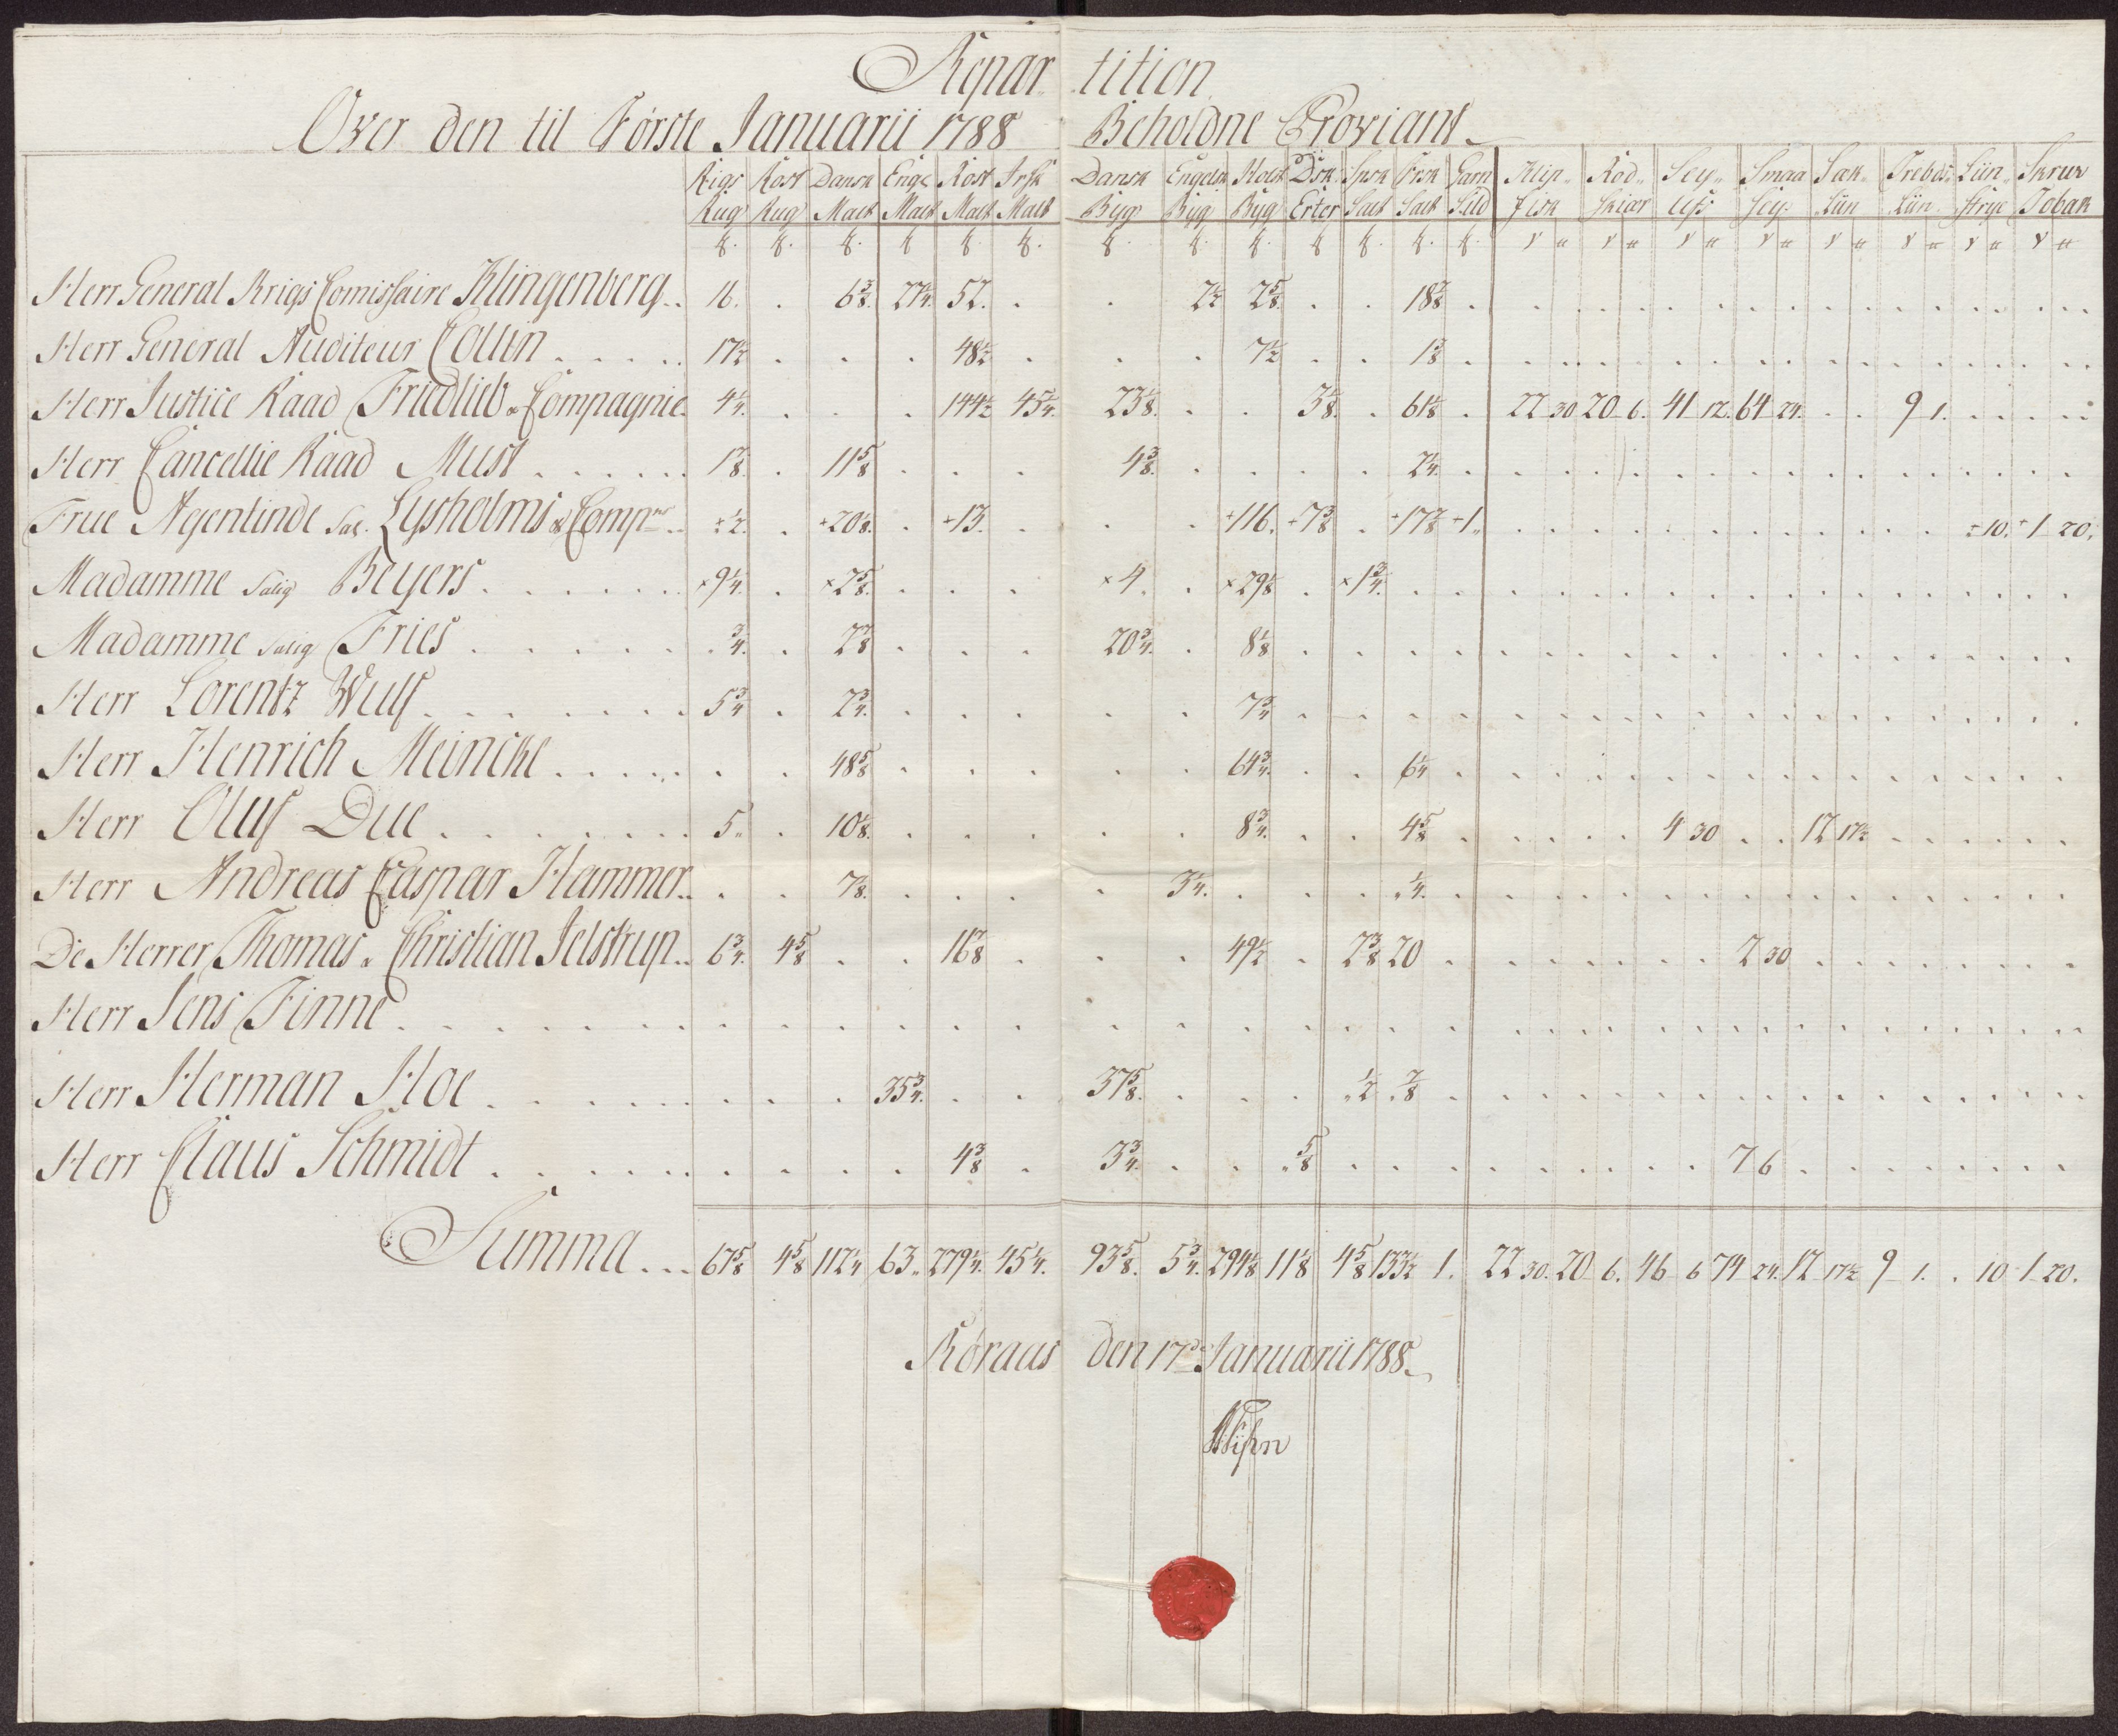 Repartition
Over den til Første Januarii 1788 Beholdne Proviant
Rigs Rug | Rost Rug | Dansk Malt | Engl Malt | Rost Malt | Irsk Malt | Dansk Byg | Engelsk Byg | Holst Byg | Dsk. Erter | Spsk Salt | Frsk Salt | Garn Sild | Klip- Fisk | Rød- Skiær | Sey- | Smaa Sey- | Liin | Liin | Liin- Strye | Skruv Tobak
Herr General Krigs Comissaire Klingenberg.. 16. 6 3/8. 27 1/4. 52. 2 1/2 2 5/8. 18 7/8
Herr General Auditeur Collin 17 1/2 48 1/2 7 1/2 1 3/8
Herr Justice Raad Friedlieb & Compagnie 4 1/4. 144 1/2 45 1/4. 23 1/8. 3 1/8. 61 1/8 22 30 20 6. 41 12. 64 24. 9 1.
Herr Cancellie Raad Must 1 7/8. 11 5/8 4 3/8. 2 1/4.
Frue Agentinde Sal. Lysholms & Comp. ÷ 1/2. +20 1/8. +13. +116. +7 3/8 +17 7/8 +1,, ÷10. + 1 20.
Madamme Salig Beyers ×9 1/4. ×2 5/8. ×4. ×29 1/8 ×1 3/4.
Madamme Salig Fries 3/4. 2 7/8 20 3/4. 8 1/8
Herr Lorentz Wulf 5 3/4 2 3/4. 7 3/4
Herr Henrich Meincke 48 5/8 64 3/4. 6 1/4
Herr Oluf Due 5,, 10 1/8. 8 3/4. 4 5/8 4 30 12 17 1/2
Herr Andreas Caspar Hammer.. 7 1/8. 3 1/4. 1/4.
De Herrer Thomas & Christian Jelstrup.. 6 3/4. 4 5/8 16 7/8 49 1/2 2 3/8 20 2 30
Herr Jens Finne
Herr Herman Hoe 35 3/4. 37 5/8. 1/2 7/8
Herr Claus Schmidt 4 3/8 3 3/4. 5/8 7 6
Summa... 67 5/8 4 5/8 112 1/4 63,, 279 1/4. 45 1/4. 93 5/8. 5 3/4. 294 1/8 11 1/8 4 5/8 133 1/2 1. 22 30. 20 6. 46 6 74 24. 12 17 1/2 9 1. 10 1 20.
Røraas den 17de Januarii 1788